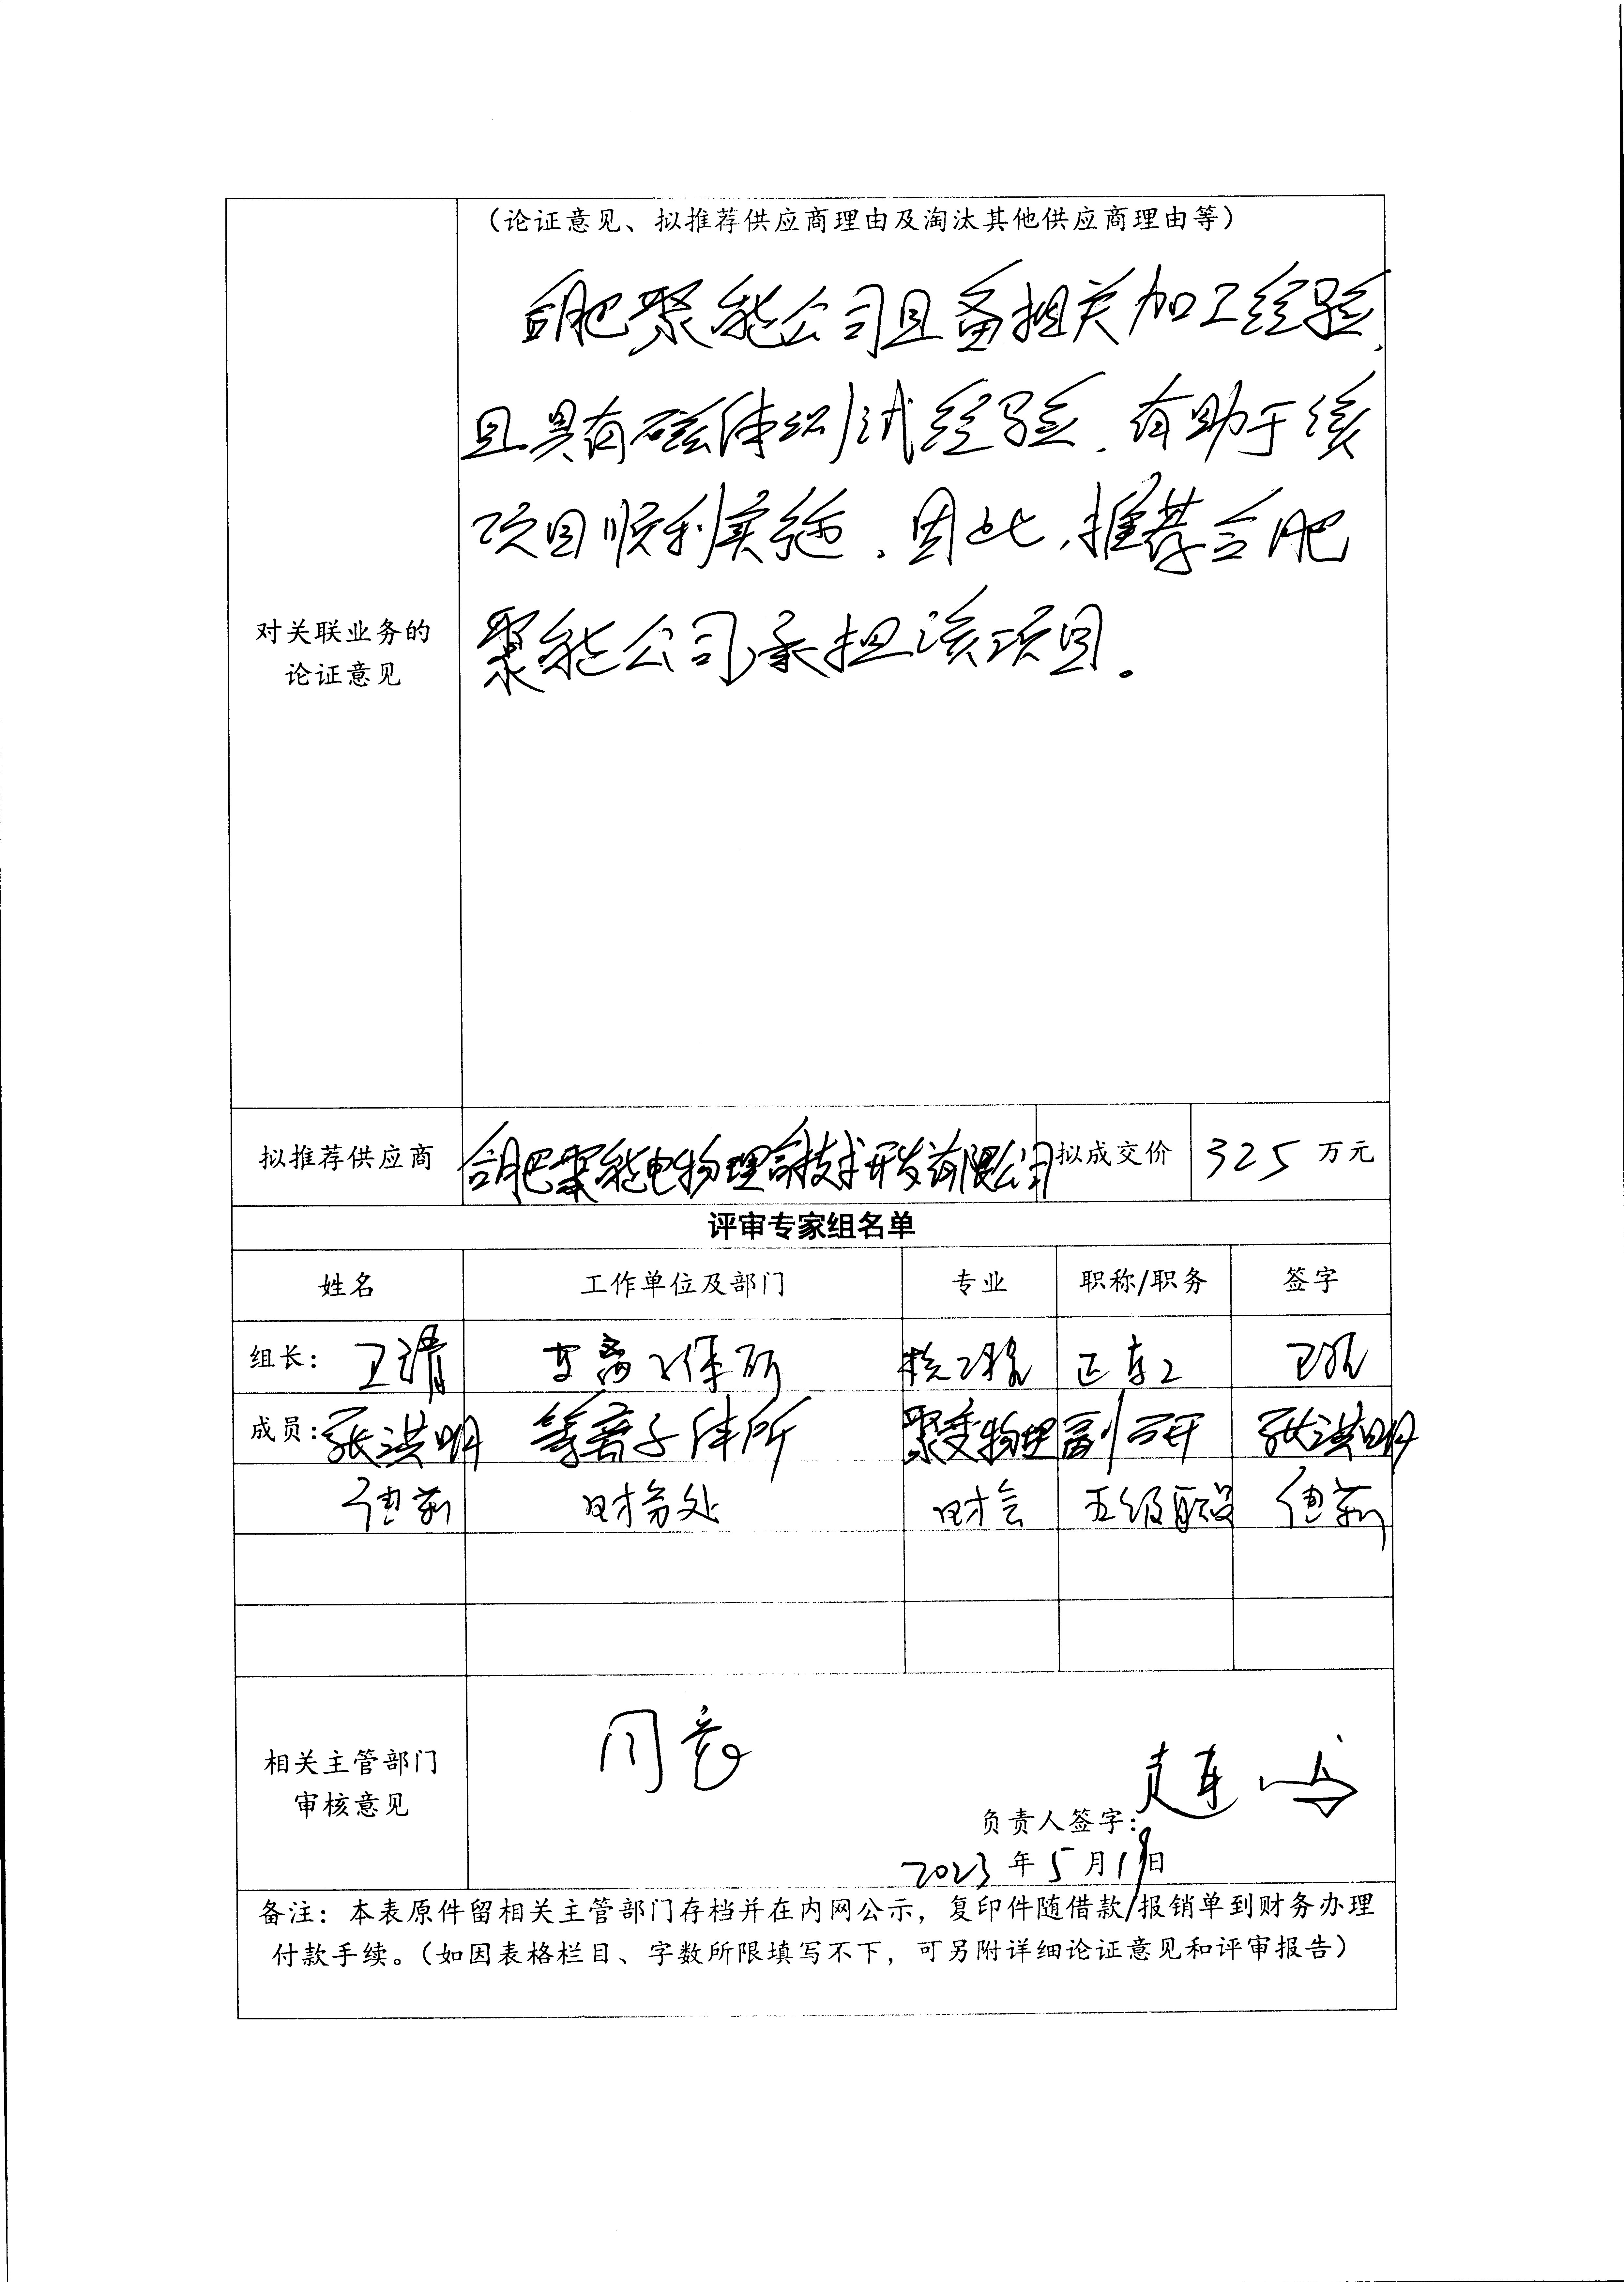 (论证意见、拟推荐供应商理由及淘汰其他供应商理由等)
合肥聚能公司具备相关加工经验,
且具有磁体测试经验,有助于该
项目顺利实施。因此,推荐合肥
聚能公司承担该项目。
对关联业务的
论证意见
拟推荐供应商 合肥聚能电物理高技术开发有限公司 拟成交价 325 万元
评审专家组名单
姓名 工作单位及部门 专业 职称/职务 签字
组长: 卫靖 等离子体所 正高工
成员: 张洪明 等离子体所 聚变物理 副研 张洪明
财务处 财会 五级职员
相关主管部门
审核意见
同意
负责人签字:
2023年5月19日
备注:本表原件留相关主管部门存档并在内网公示,复印件随借款/报销单到财务办理
付款手续。(如因表格栏目、字数所限填写不下,可另附详细论证意见和评审报告)